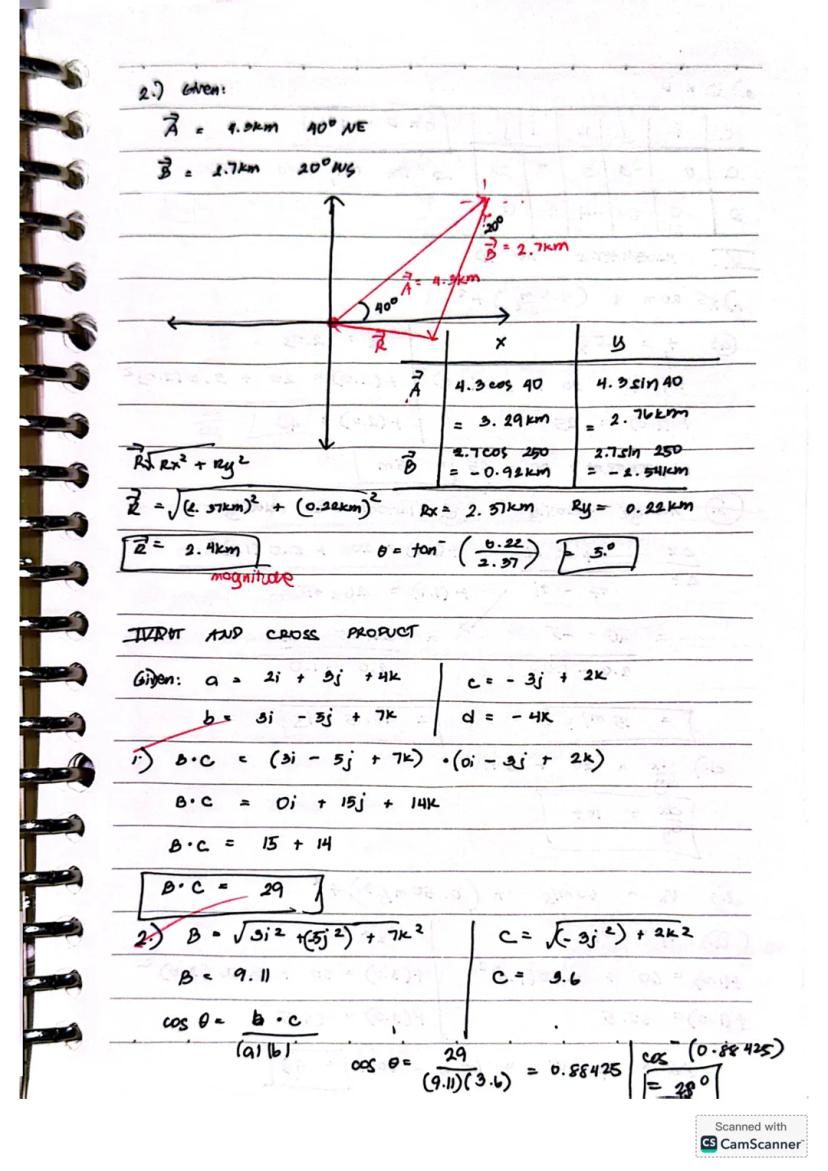 2.) Given:
A⃗ = 4.3km 40° NE
B⃗ = 2.7km 20° WS
20°
B⃗ = 2.7km
A⃗ = 4.3km
40°
R⃗
x y
A⃗ 4.3 cos 40 4.3 sin 40
= 3.29km = 2.76km
B⃗ 2.7cos 250 2.7sin 250
= -0.92km = -2.54km
R⃗√Rx² + Ry²
R⃗ = √(2.37km)² + (0.22km)² Rx = 2.37km Ry = 0.22km
R⃗ = 2.4km θ = tan⁻ (0.22/2.37) = 5.°
magnitude
AND CROSS PRODUCT
Given: a = 2i + 3j + 4k c = - 3j + 2k
b = 3i - 5j + 7k d = - 4k
1.) B·C = (3i - 5j + 7k) · (0i - 3j + 2k)
B·C = 0i + 15j + 14k
B·C = 15 + 14
B·C = 29
2.) B = √3i² +(-5j²) + 7k² C = √(-3j²) + 2k²
B = 9.11 C = 3.6
cos θ = b · c / |a| |b|
cos θ = 29 / (9.11)(3.6) = 0.88425 cos⁻ (0.88425)
= 28°
Scanned with
CS CamScanner